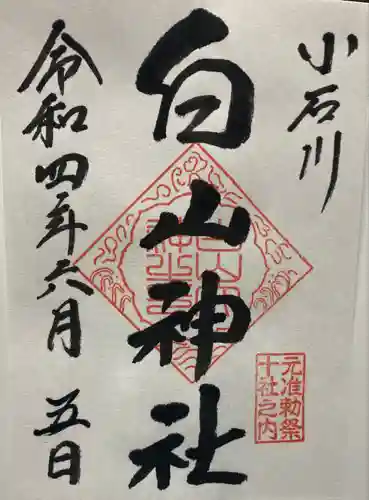 小石川
元准勅祭
十社之内
白山神社
令和四年六月五日